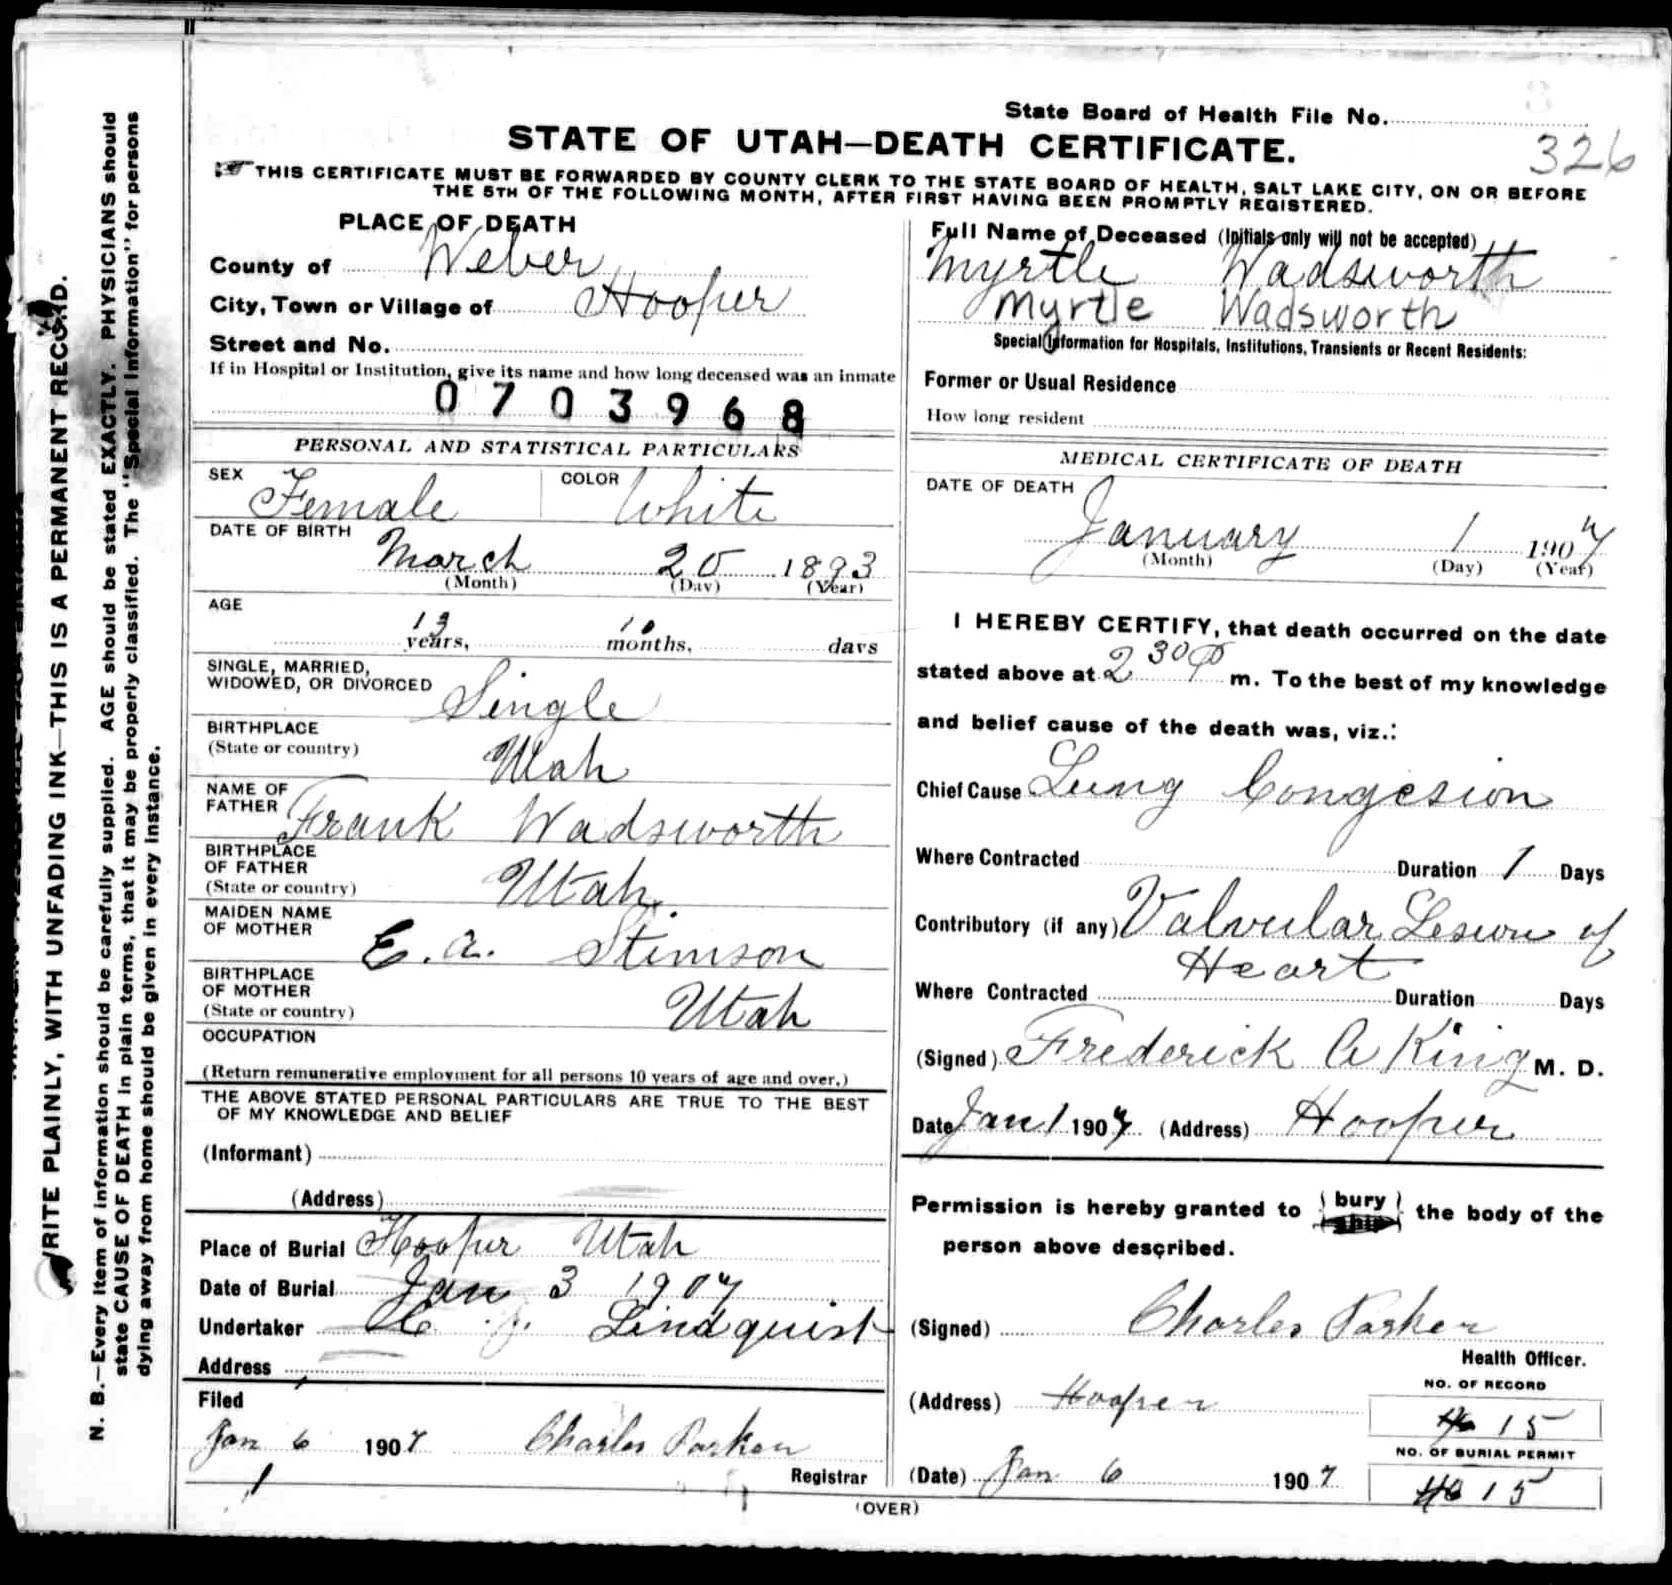 State Board of Health File No.
326
STATE OF UTAH—DEATH CERTIFICATE.
THIS CERTIFICATE MUST BE FORWARDED BY COUNTY CLERK TO THE STATE BOARD OF HEALTH, SALT LAKE CITY, ON OR BEFORE
THE 5TH OF THE FOLLOWING MONTH, AFTER FIRST HAVING BEEN PROMPTLY REGISTERED.
PLACE OF DEATH
County of Weber
City, Town or Village of Hooper
Street and No.
If in Hospital or Institution, give its name and how long deceased was an inmate
0703968
PERSONAL AND STATISTICAL PARTICULARS
SEX Female COLOR White
DATE OF BIRTH
March 20 1893
(Month) (Day) (Year)
AGE
13 years, 10 months, days
SINGLE, MARRIED,
WIDOWED, OR DIVORCED Single
BIRTHPLACE
(State or country) Utah
NAME OF
FATHER Frank Wadsworth
BIRTHPLACE
OF FATHER
(State or country) Utah.
MAIDEN NAME
OF MOTHER E. A. Stimson
BIRTHPLACE
OF MOTHER
(State or country) Utah
OCCUPATION
(Return remunerative employment for all persons 10 years of age and over.)
THE ABOVE STATED PERSONAL PARTICULARS ARE TRUE TO THE BEST
OF MY KNOWLEDGE AND BELIEF
(Informant)
(Address)
Place of Burial Hooper Utah
Date of Burial Jan 3 1907
Undertaker Lindquist
Address
Filed
Jan 6 1907 Charles Parker
Registrar
1
Full Name of Deceased (Initials only will not be accepted)
Myrtle Wadsworth
Myrtle Wadsworth
Special Information for Hospitals, Institutions, Transients or Recent Residents:
Former or Usual Residence
How long resident
MEDICAL CERTIFICATE OF DEATH
DATE OF DEATH
January 1 1907
(Month) (Day) (Year)
I HEREBY CERTIFY, that death occurred on the date
stated above at 2 30 P m. To the best of my knowledge
and belief cause of the death was, viz.:
Chief Cause Lung Congesion
Where Contracted Duration 1 Days
Contributory (if any) Valvular Lesion of
Heart
Where Contracted Duration Days
(Signed) Frederick A King M. D.
Date Jan 1 1907 (Address) Hooper
Permission is hereby granted to bury ship the body of the
person above described.
(Signed) Charles Parker
Health Officer.
(Address) Hooper
NO. OF RECORD
15
NO. OF BURIAL PERMIT
15
(Date) Jan 6 1907
(OVER)
WRITE PLAINLY, WITH UNFADING INK—THIS IS A PERMANENT RECORD.
N. B.—Every item of information should be carefully supplied. AGE should be stated EXACTLY. PHYSICIANS should
state CAUSE OF DEATH in plain terms, that it may be properly classified. The "Special Information" for persons
dying away from home should be given in every instance.